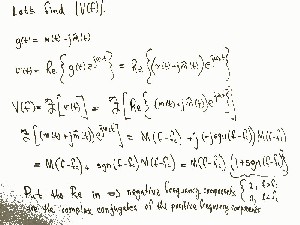 Let's find |V(f)|.
g(t) = m(t) - jm̂(t)
v(t) = Re{g(t) e^{jω_c t}} = Re{(m(t) + jm̂(t)) e^{jω_c t}}
V(f) = ℱ[v(t)] = ℱ[Re{(m(t) + jm̂(t)) e^{jω_c t}}]
ℱ[(m(t) + jm̂(t)) e^{jω_c t}] = M(f-f_c) + j(-j sgn(f-f_c)) M(f-f_c)
= M(f-f_c) + sgn(f-f_c) M(f-f_c) = M(f-f_c) (1 + sgn(f-f_c))
{ 2, f>f_c
0, f<f_c
Put the Re in => negative frequency components
are the complex conjugates of the positive frequency components